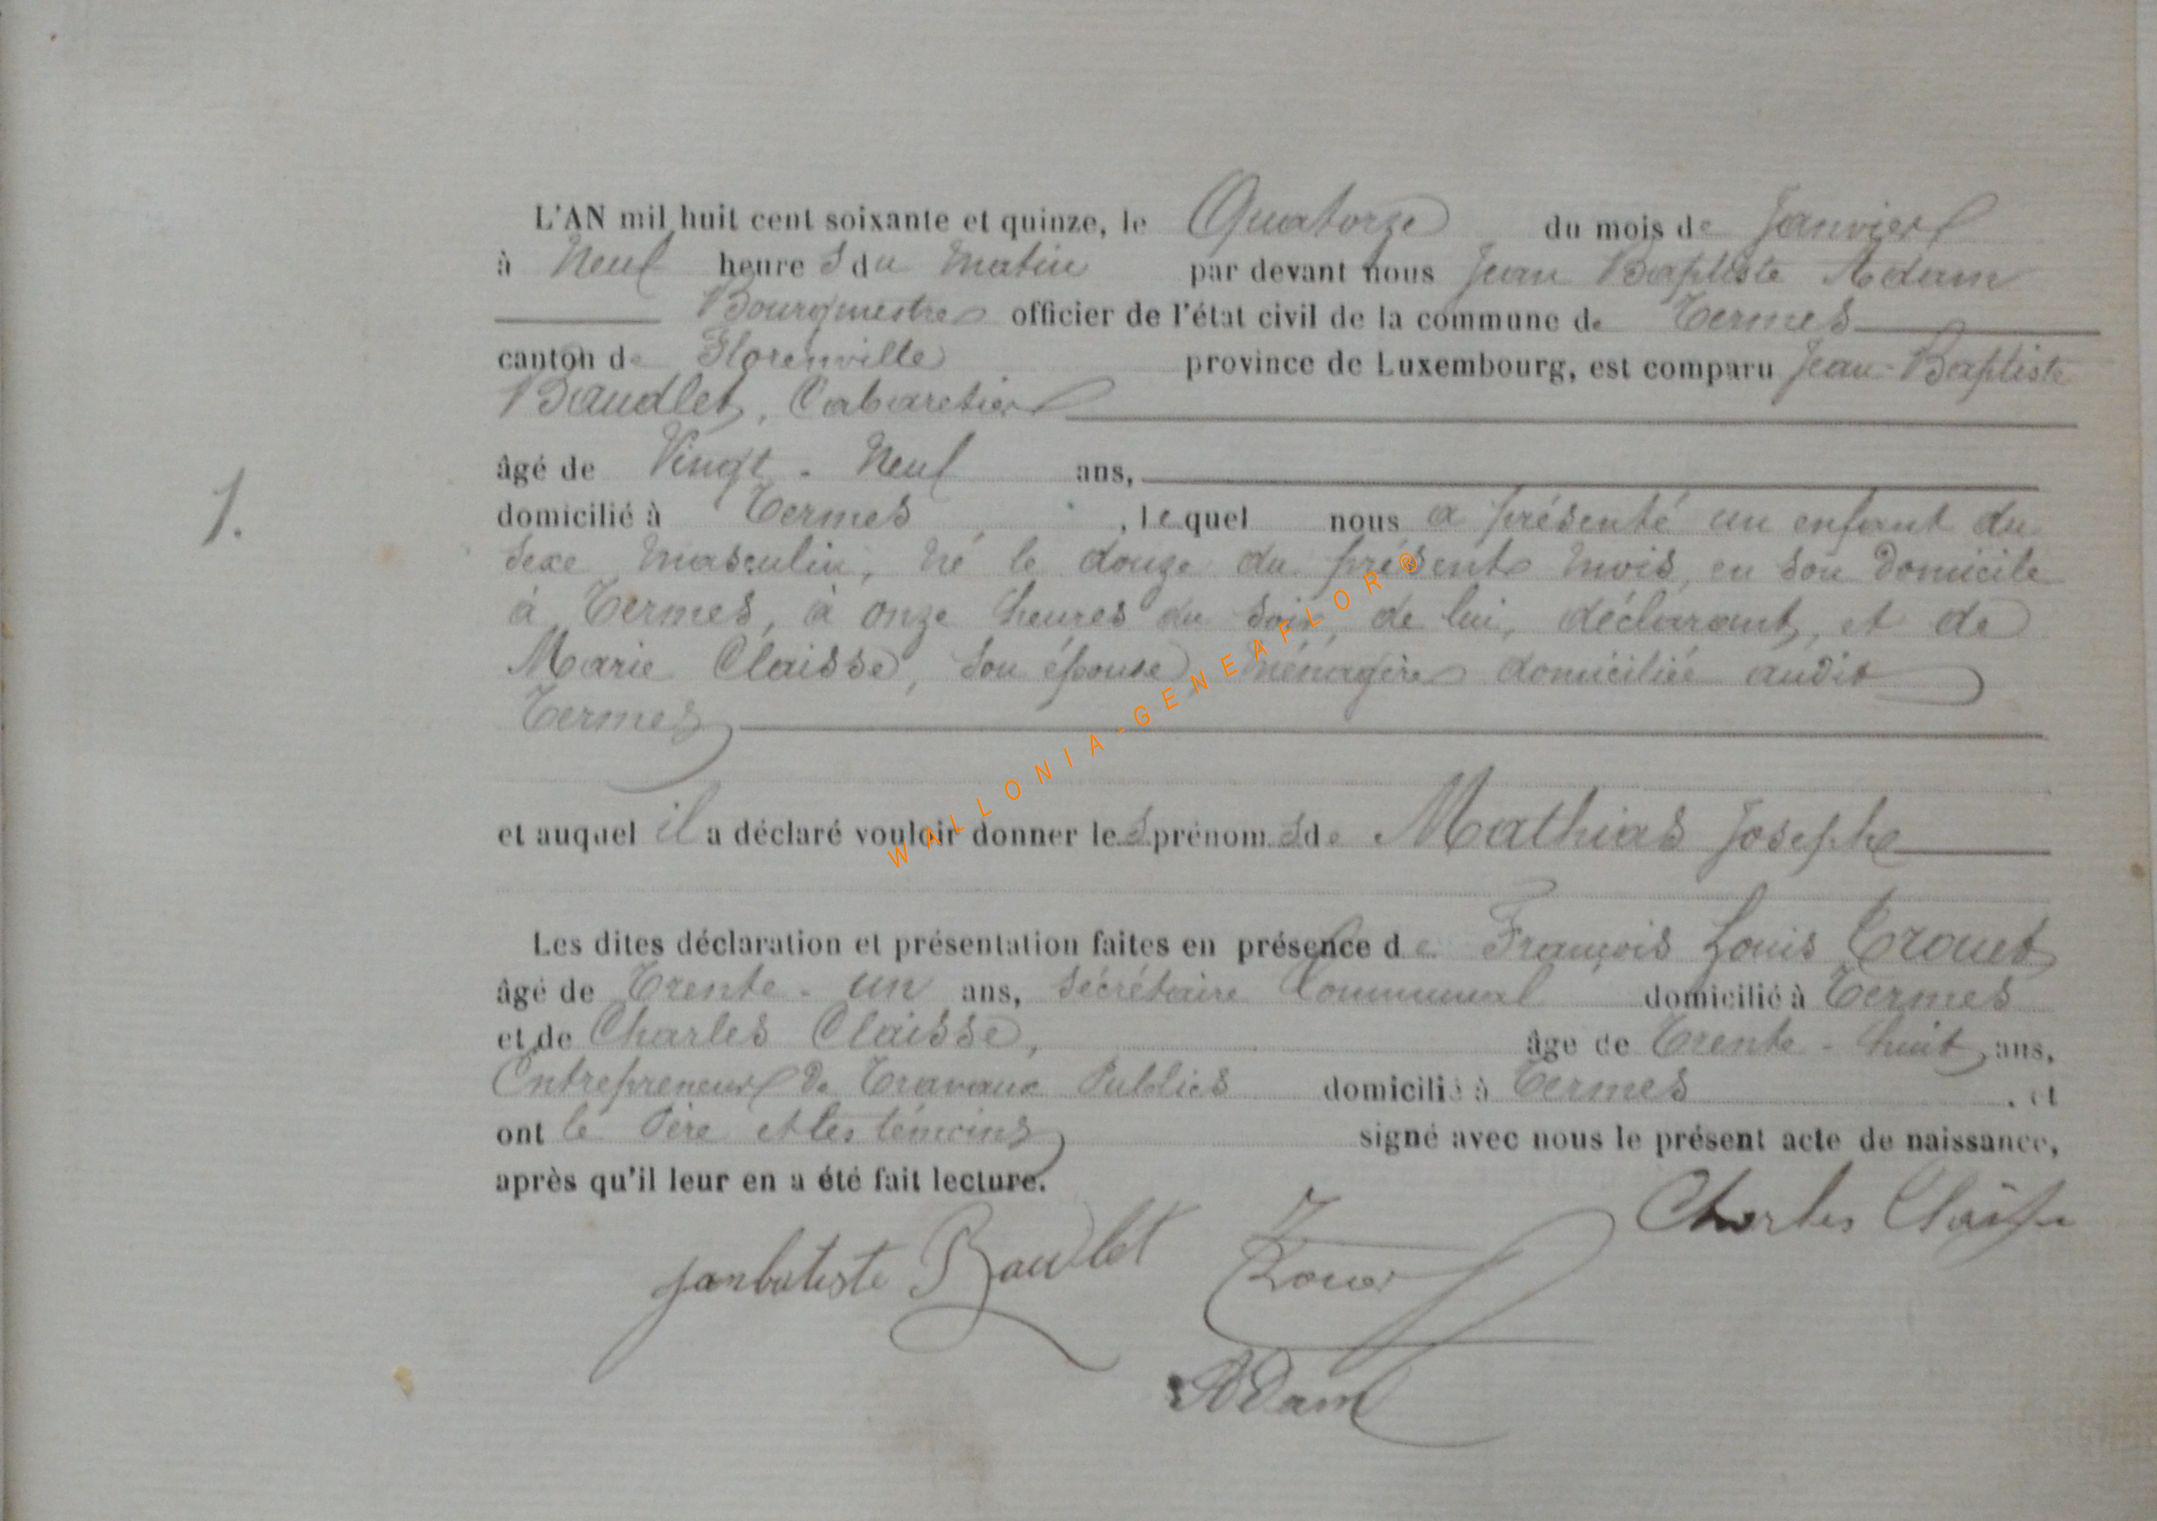 L'AN mil huit cent soixante et quinze, le Quatorze du mois de Janvier
à Neuf heures du Matin par devant nous Jean Baptiste Adam
Bourgmestre officier de l'état civil de la commune de Termes
canton de Florenville province de Luxembourg, est comparu Jean-Baptiste
Baudlet, Cabaretier
âgé de Vingt-Neuf ans,
1.
domicilié à Termes, lequel nous a présenté un enfant du
sexe masculin, né le douze du présent mois, en son domicile
à Termes, à onze heures du soir, de lui, déclarant, et de
Marie Claisse, son épouse, ménagère domiciliée audit
Termes
et auquel il a déclaré vouloir donner les prénoms de Mathias Joseph
Les dites déclaration et présentation faites en présence de François Louis Trouet
âgé de Trente-un ans, Secrétaire Communal domicilié à Termes
et de Charles Claisse, âge de Trente-huit ans,
Entrepreneur de Travaux Publics domicilié à Termes, et
ont le Père et les témoins signé avec nous le présent acte de naissance,
après qu'il leur en a été fait lecture.
Charles Claisse
janbatiste Baudlet
Adam
WALLONIA-GENEAFLOR ®